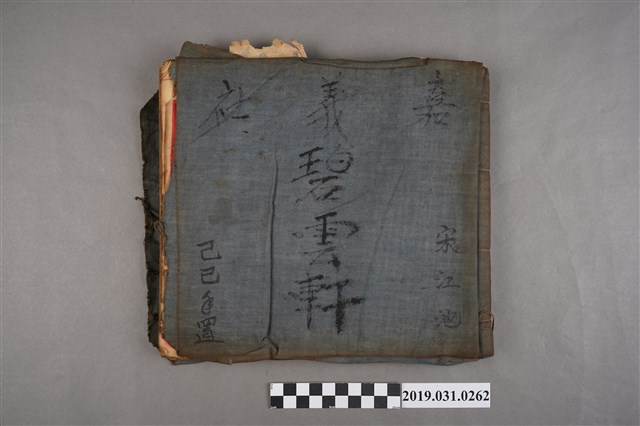 嘉義社
宋江池
碧雲軒
己巳年置
2019.031.0262